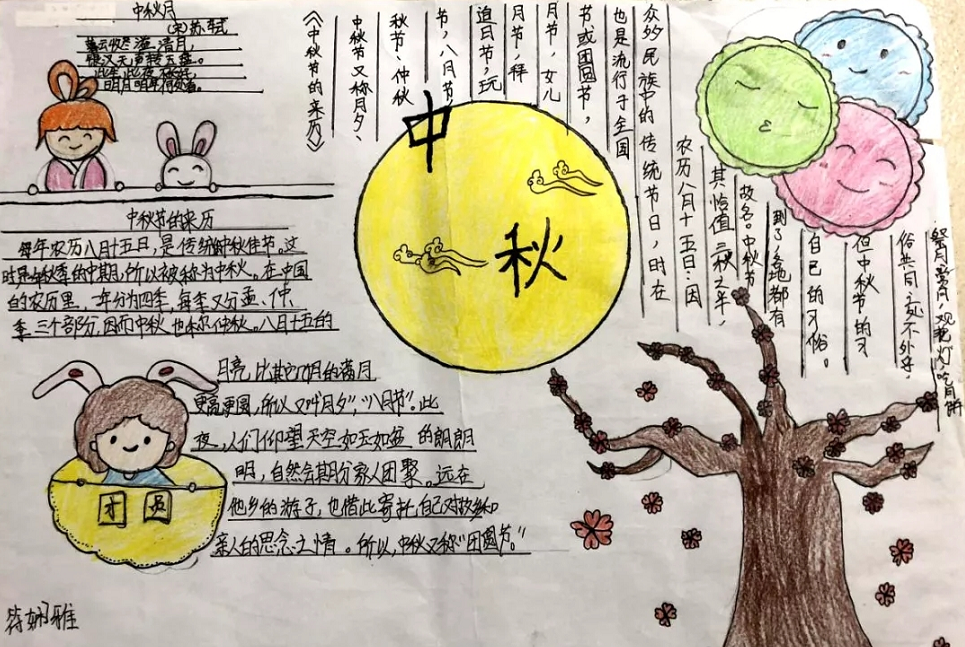 中秋月
(宋)苏轼
暮云收尽溢清月,
银汉无声转玉盘。
此生此夜不长好,
明月明年何处看。
中秋节的来历
每年农历八月十五日,是传统的中秋佳节。这
时是年秋季的中期,所以被称为中秋。在中国
的农历里,一年分为四季,每季又分孟、仲、
季三个部分,因而中秋也称仲秋。八月十五的
月亮比其它几个月的满月
更高更圆,所以又叫"月夕","八月节"。此
夜,人们仰望天空如玉如盆的朗朗
明,自然会期分家人团聚。远在
他乡的游子,也借此寄托自己对故乡和
亲人的思念之情。所以,中秋又称"团圆节。"
团 员
中
秋
《中秋节的来历》
中秋节又称月夕、
秋节、仲秋
节,八月节,
追月节,玩
月节,拜
月节,女儿
节或团圆节,
也是流行于全国
众多民族中的传统节日,时在
农历八月十五日:因
其恰值三秋之半,
故名。中秋节
到了各地都有
自己的习俗。
但中秋节的习
俗共同之处不外乎,
祭月赏月,观花灯,吃月饼
符娴雅